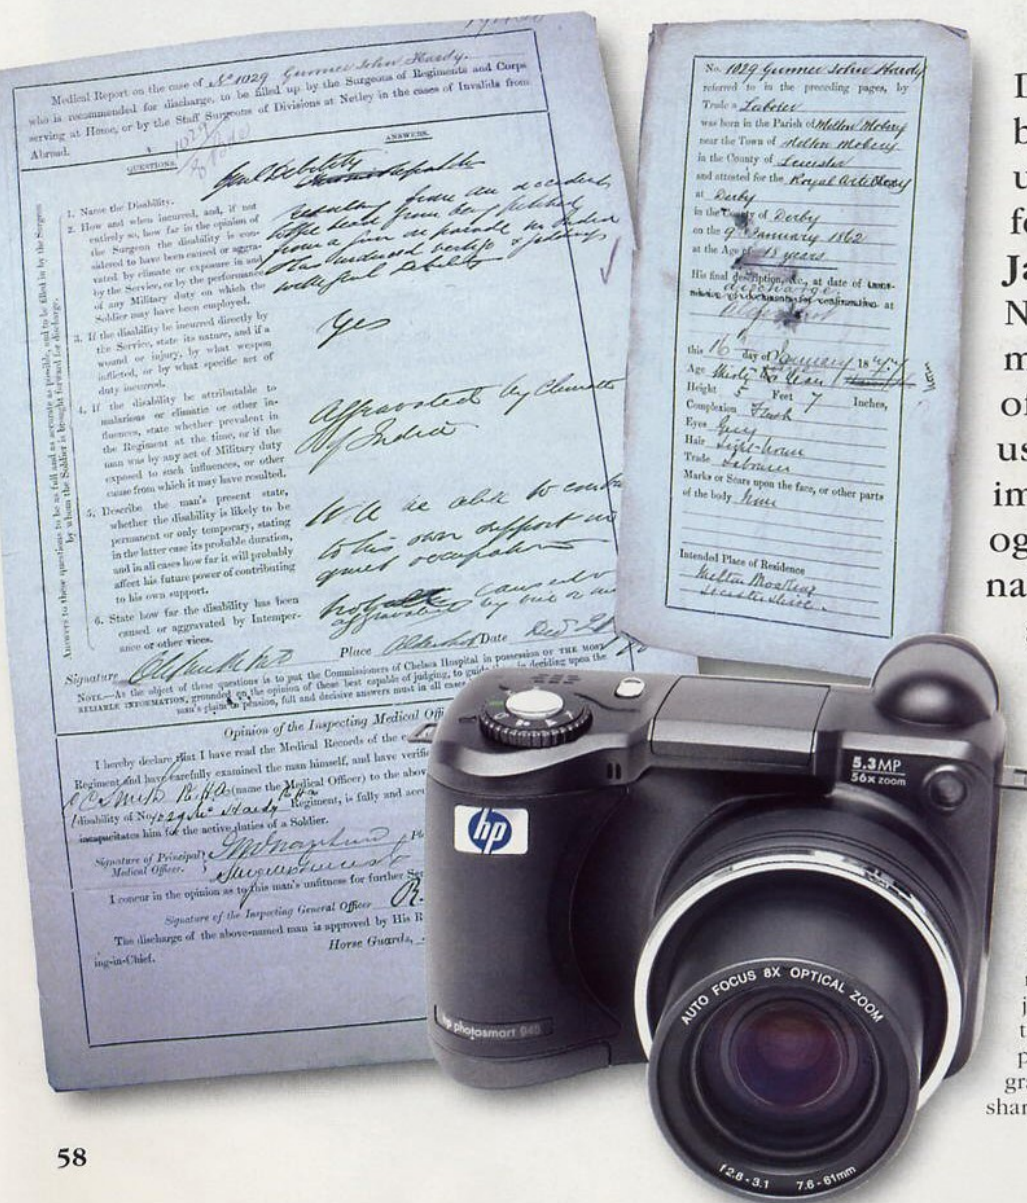 Medical Report on the case of No 1029 Gunner John Hardy.
who is recommended for discharge, to be filled up by the Surgeons of Regiments and Corps
serving at Home, or by the Staff Surgeons of Divisions at Netley in the cases of Invalids from
Abroad.
QUESTIONS.
ANSWERS.
Answers to these questions to be as full and as accurate as possible, and to be filled in by the Surgeon
by whom the Soldier is brought forward for discharge.
1. Name the Disability.
2. How and when incurred, and, if not
entirely so, how far in the opinion of
the Surgeon the disability is con-
sidered to have been caused or aggra-
vated by climate or exposure in and
by the Service, or by the performance
of any Military duty on which the
Soldier may have been employed.
3. If the disability be incurred directly by
the Service, state its nature, and if a
wound or injury, by what weapon
inflicted, or by what specific act of
duty incurred.
4. If the disability be attributable to
malarious or climatic or other in-
fluences, state whether prevalent in
the Regiment at the time, or if the
man was by any act of Military duty
exposed to such influences, or other
cause from which it may have resulted.
5. Describe the man's present state,
whether the disability is likely to be
permanent or only temporary, stating
in the latter case its probable duration,
and in all cases how far it will probably
affect his future power of contributing
to his own support.
6. State how far the disability has been
caused or aggravated by Intemper-
ance or other vices.
Debility
resulting from an accident
to the head from being pitched
from a gun on parade in India
Has induced vertigo &
with Debility
Yes
Aggravated by Climate
of India
Will be able to
to his own support
quiet occupation
aggravated by vice or
Signature
Place Aldershot Date
NOTE.—As the object of these questions is to put the Commissioners of Chelsea Hospital in possession of THE MOST
RELIABLE INFORMATION, grounded on the opinion of those best capable of judging, to guide in deciding upon the
man's claim to pension, full and decisive answers must in all cases
Opinion of the Inspecting Medical Offi
I hereby declare that I have read the Medical Records of the
Regiment and have carefully examined the man himself, and have verifie
(name the Medical Officer) to the abov
disability of No 1029 Hardy Regiment, is fully and acc
incapacitates him for the active duties of a Soldier.
Signature of Principal
Medical Officer.
I concur in the opinion as to this man's unfitness for further Ser
Signature of the Inspecting General Officer R.
The discharge of the above-named man is approved by His R
ing-in-Chief.
Horse Guards,
No. 1029 Gunner John Hardy
referred to in the preceding pages, by
Trade a Laborer
was born in the Parish of Melton Mobery
near the Town of Melton Mobery
in the County of Leicester
and attested for the Royal Artillery
at Derby
in the County of Derby
on the 9 January 1862
at the Age of 18 years
His final description, &c., at date of
discharge
at
this 16 day of January 18
Age Years
Height 5 Feet 7 Inches,
Complexion Fresh
Eyes Grey
Hair Light brown
Trade Labourer
Marks or Scars upon the face, or other parts
of the body None
Intended Place of Residence
Melton
Leicestershire
5.3MP
56x zoom
hp
hp photosmart 945
AUTO FOCUS 8X OPTICAL ZOOM
f2.8-3.1 7.6-61mm
Ja
N
m
us
im
og
na
gra
shar
58